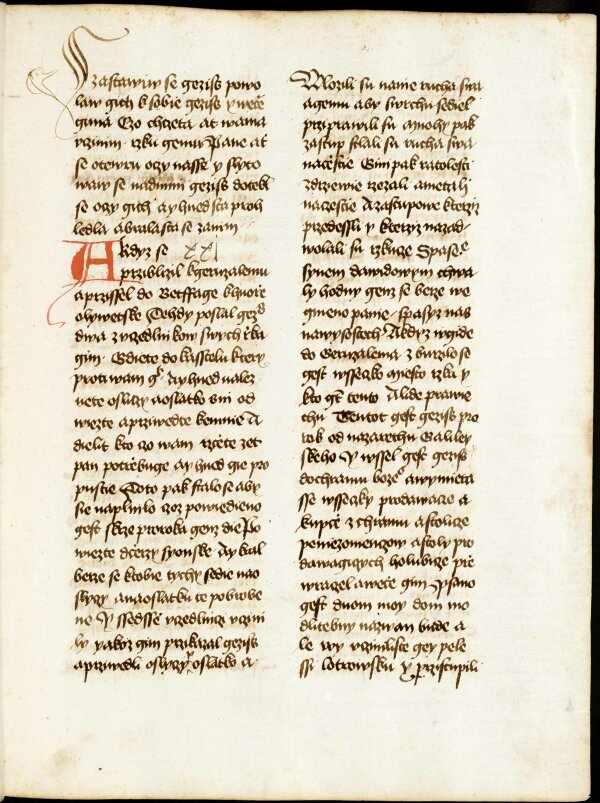 I zastawiw se geziss powo
law gich k sobie geziss y wece
gima Czo chczeta at wama
vczinim rzku gemu Pane at
se otewru oczy nassie y slyto
waw se nad nimi geziss dotekl
se oczy gich a y hned sta proh
ledla a brala sta se za nim
A kdyz se xxi
prziblizil k geruzalemu
a przissel do Betffage k huorze
olywetske Tehdy poslal gezs
dwa z vczedlnikow swych rka
gim Gdiete do kasstelu ktery
proti wam gt A y hned nalez
nete osliczy a oslatko s ni od
wiezte a przywedte ke mnie A
die li t kto czo wam rzcete zet
pan potrebuge a y hned gie pro
pustie Toto pak stalo se aby
sie naplnilo czoz powiedieno
gest skrze proroka genz die Po
wiezte dceerzy syonske Ay kral
berze se k tobie tychy sedie na o
slyczy a na oslatku te podrobe
ne Y ssedsse vczedlnicze vczini
ly yakoz gim przikazal geziss
a przywedli oslyczy oslatko a
Wlozili su na nie rucha swa
a gemu aby swrchu sediel
przyprawili su A mohy pak
zastup stlali su rucha swa
na cestie Gini pak ratolesti
z drzewie rzezali a metali
na czestie A zastupowe kterzyz
przedessli y kterzyz nazad
wolali su rzkucze Spas se
synem dawidowym chwa
ly hodny genz se berze we
gmeno panie Spas yz nas
na wysostech A kdyz wgide
do Geruzalema zburzilo se
gest wssecko miesto rzku y
kto gt tento A lide prawie
chu Tentot gest geziss pro
rok od nazarethu Galiley
skeho Y wssel gest geziss
do chramu bozeo a wymieta
sse wssecky prodawacie a
kupce z chramu a stolicze
peniezomenczow a stoly pro
dawagiczych holubicze prze
wraczel a wece gim Psano
gest duom moy dom mo
dlitebny nazwan bude a
le wy vczinilisste gey pele
ssi lotrowsku Y przistupili